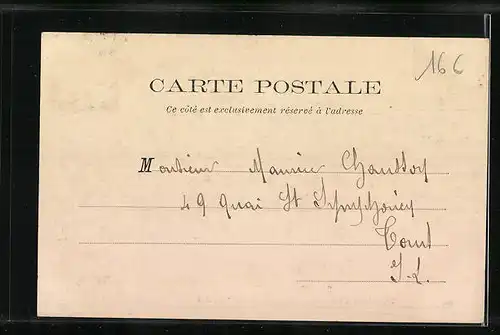 16 C
CARTE POSTALE
Ce côté est exclusivement réservé à l'adresse
Monsieur Maurice
49 Quai St Symphorien